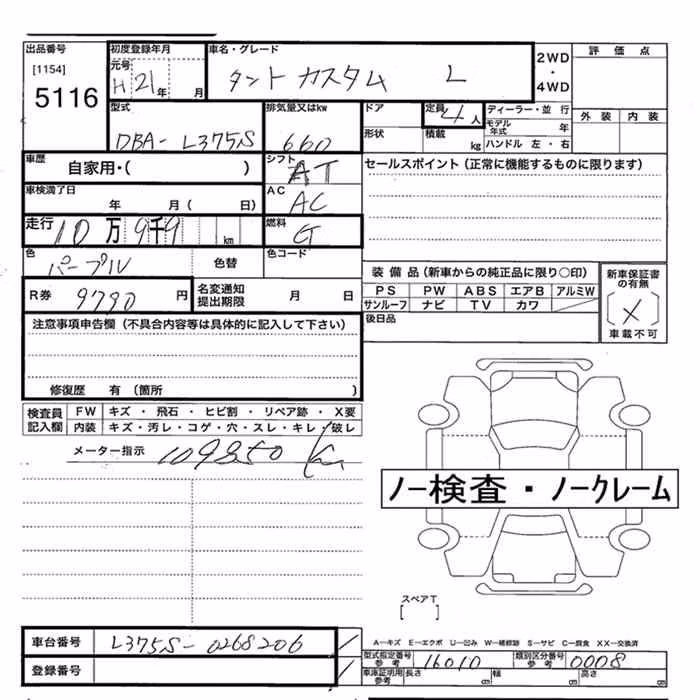 出品番号 初度登録年月 車名・グレード 2WD 評価点
[1154] 元号 ・
5116 H 21年 月 タント カスタム L 4WD
型式 排気量又はkw ドア 定員 4人 ディーラー・並行 外装 内装
モデル年式 年
DBA-L375S 660 形状 積載 kg ハンドル 左・右
車歴 自家用・( ) シフト AT セールスポイント(正常に機能するものに限ります)
車検満了日 年 月( 日) AC AC
走行 10万9千9 km 燃料 G
色 パープル 色替 色コード
装備品(新車からの純正品に限り○印) 新車保証書の有無
R券 9790円 名変通知提出期限 月 日 PS PW ABS エアB アルミW
サンルーフ ナビ TV カワ [×]
注意事項申告欄(不具合内容等は具体的に記入して下さい) 後日品 車載不可
修復歴 有(箇所 )
検査員記入欄 FW キズ・飛石・ヒビ割・リペア跡・X要
内装 キズ・汚レ・コゲ・穴・スレ・キレ・破レ
メーター指示 109850 Km
ノー検査・ノークレーム
スペアT
[ ]
車台番号 L375S-0268206
A-キズ E-エクボ U-凹み W-補修跡 S-サビ C-腐食 XX-交換済
登録番号 型式指定番号 参考 16010 類別区分番号 参考 0008
車庫証明用参考 長さ cm 幅 cm 高さ cm